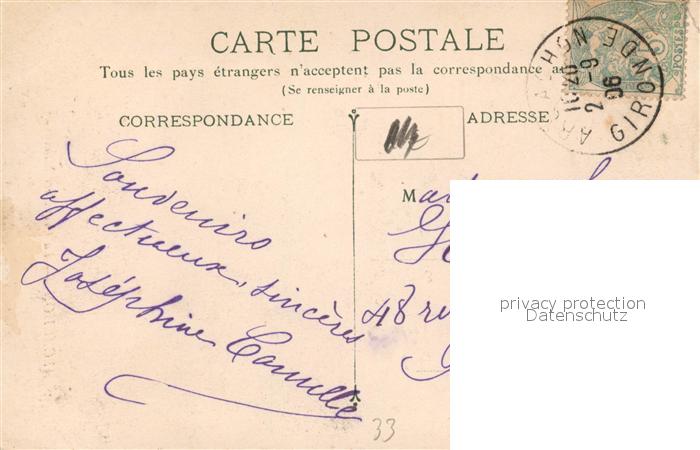 CARTE POSTALE
Tous les pays étrangers n'acceptent pas la correspondance au
(Se renseigner à la poste)
CORRESPONDANCE
ADRESSE
ARCACHON
GIRONDE
2 -9
06
POSTES
Souvenirs
affectueux, sincères
Joséphine Camille
M
48 ru
33
privacy protection
Datenschutz